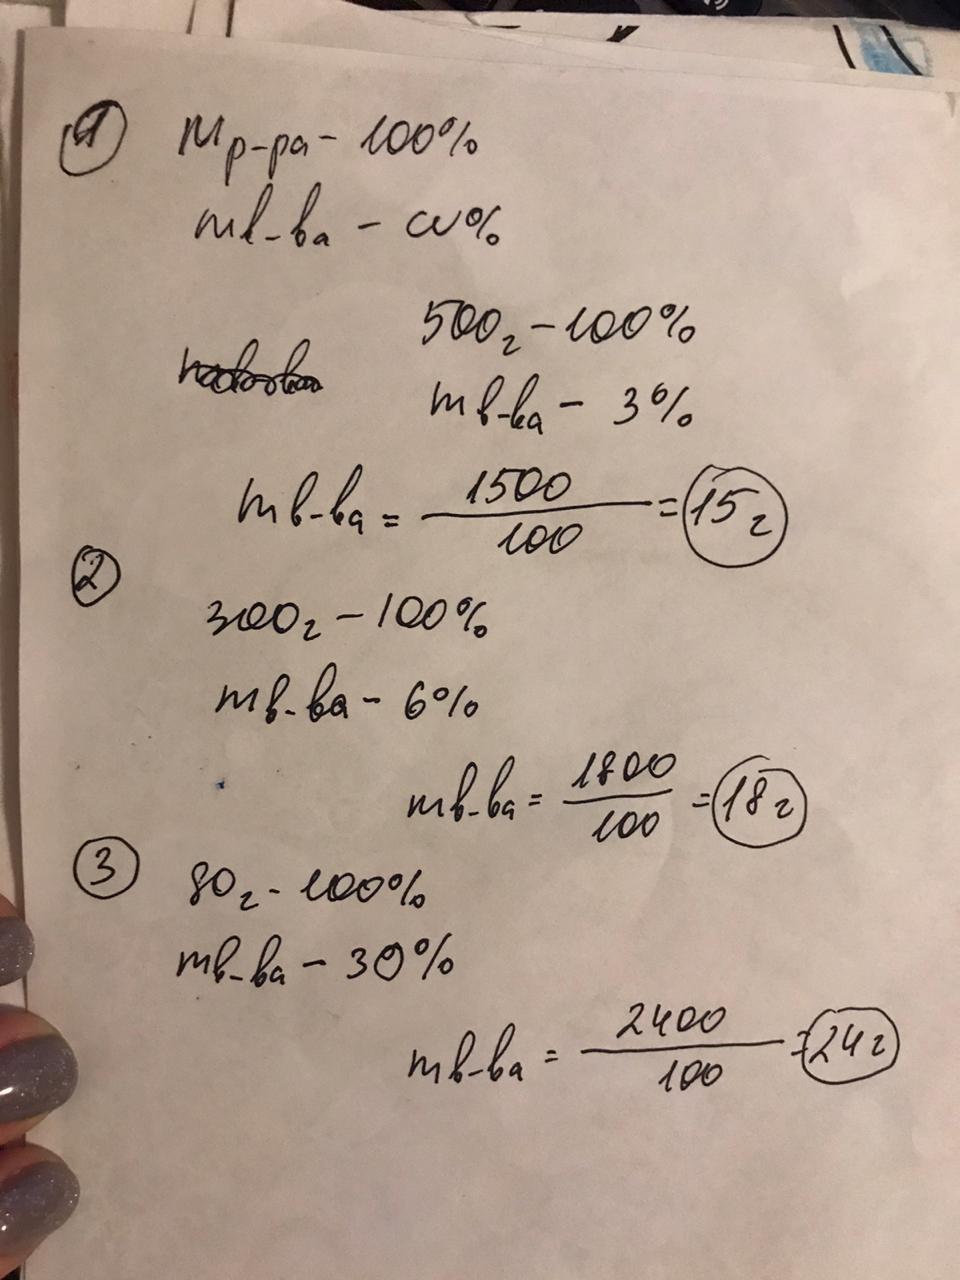 1 mр-ра - 100%
mв-ва - ω%
500г - 100%
mв-ва - 3%
mв-ва = 1500/100 = 15г
2
300г - 100%
mв-ва - 6%
mв-ва = 1800/100 = 18г
3
80г - 100%
mв-ва - 30%
mв-ва = 2400/100 = 24г